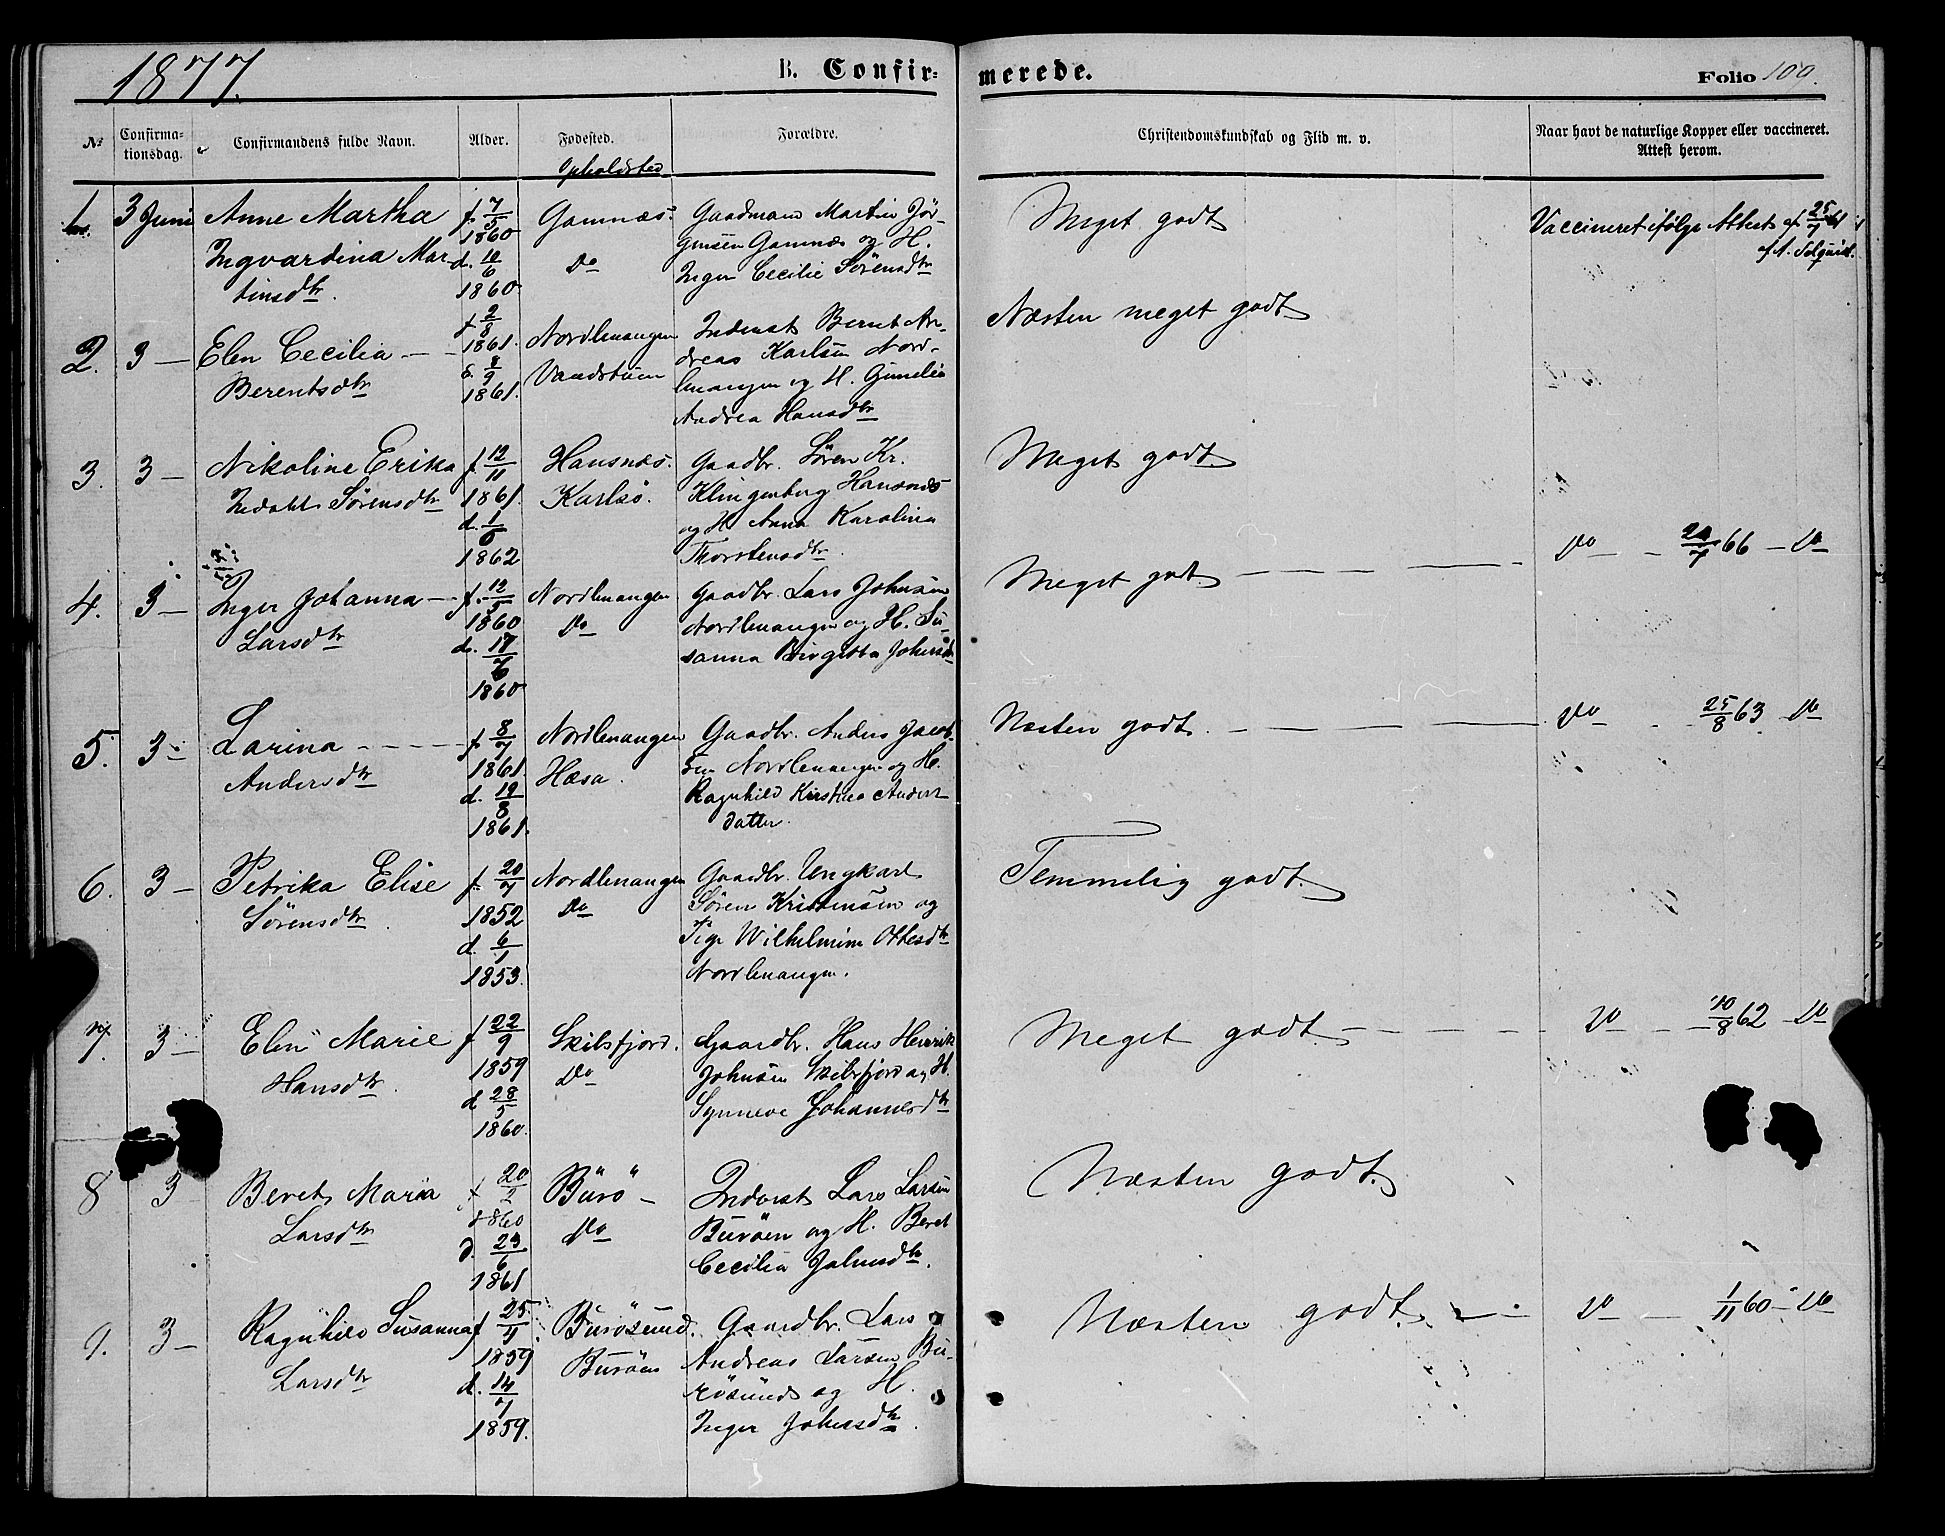 1877.
B. Confirmerede.
Folio 109.
№
Confirmationsdag.
Confirmandens fulde Navn.
Alder.
Fødested.
Opholdsted
Forældre.
Christendomskundskab og Flid m. v.
Naar havt de naturlige Kopper eller vaccineret.
Attest herom.
1. 3 Juni Anne Martha
Ingvardina Mar-
tinsdtr.
f. 7/5
1860
d. 10/6
1860
Gamnæs.
Do
Gaadmand Martin Jør-
gensen Gamnæs og H.
Inger Cecilie Sørensdtr
Meget godt
Vaccineret ifølge Attest af 25/7 61
af A.
2. 3 — Elen Cecilia — —
Berentsdtr
f. 2/8
1861.
d. 8/9
1861.
Nordlenangen
Vandstuen
Inderst Bernt An-
dreas Karlsen Nord-
lenangen og H. Gunelia
Andrea Hansdtr
Næsten meget godt
3. 3 — Nikoline Erika
Sørensdtr
f. 12/11
1861.
d. 1/6
1862
Hansnæs.
Karlsø.
Gaadbr. Søren Kr.
Klingenberg Hansnæs
og H. Anna Karolina
Thorstensdtr.
Meget godt.
4. 3 — Inger Johanna —
Larsdtr
f. 12/5
1860
d. 17/6
1860
Nordlenangen
Do
Gaadbr. Lars Johnsen
Nordlenangen og H. Su-
sanna Birgitta Johnsdtr
Meget godt. — — — —
Do — 20/7 66 — Do
5. 3 — Larina — — — —
Andersdtr
f. 8/7
1861.
d. 19/8
1861.
Nordlenangen
Hæsa.
Gaadbr. Anders Jacob-
sen Nordlenangen og H.
Ragnhild Kirstina Anders-
datter.
Næsten godt. — — — —
Do — 25/8 63 — Do
6. 3 — Petrika Elise
Sørensdtr.
f. 20/7
1852
d. 6/1
1853.
Nordlenangen
Do
Gaardbr. Ungkarl
Søren Kristensen og
Pige Wilhelmine Ottesdtr
Nordlenangen.
Temmelig godt.
7. 3 — Elen Marie
Hansdtr.
f. 22/9
1859
d. 28/5
1860.
Skibsfjord.
Do
Gaardbr. Hans Henrik
Johnsen Skibsfjord og H.
Synneve Johannesdtr
Meget godt. — — — —
Do — 10/8 62 — Do
8 3 — Beret Maria
Larsdtr
f. 20/2
1860
d. 23/6
1861
Burø —
Do
Inderst Lars Larsen
Burøen og H. Beret
Cecilia Johnsdtr.
Næsten godt.
9. 3 — Ragnhild Susanna
Larsdtr
f. 25/4
1859
d. 14/7
1859.
Burøsund.
Burøen
Gaardbr. Lars
Andreas Larsen Bu-
røsund og H.
Inger Johnsdtr.
Næsten godt. — —
Do — 1/11 60 — Do